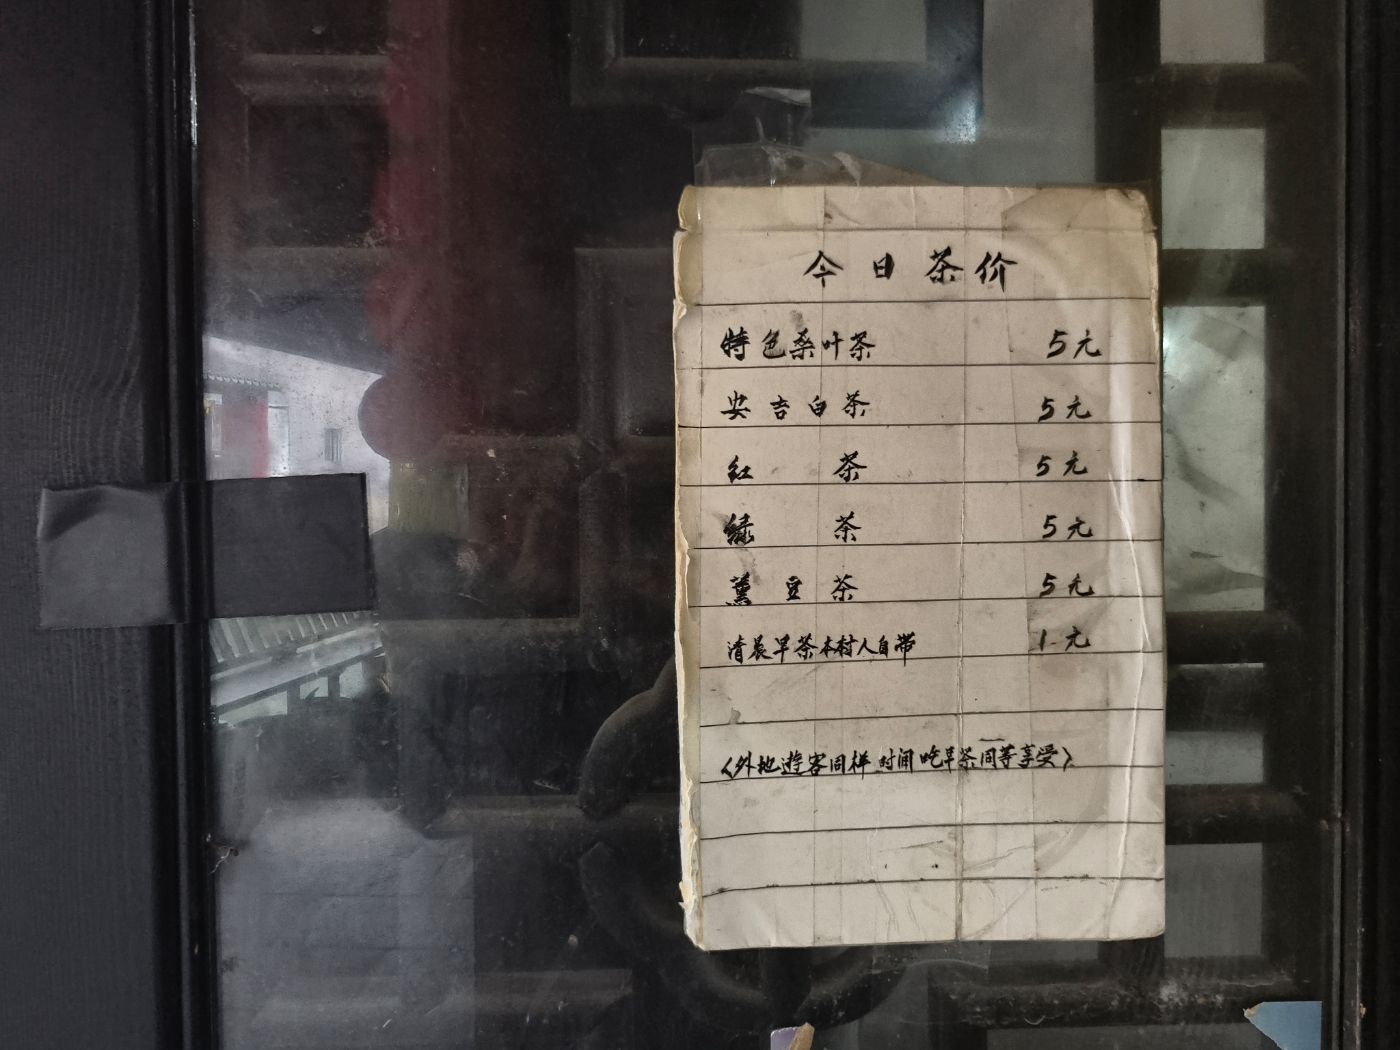 今日茶价
特色桑叶茶 5元
安吉白茶 5元
红茶 5元
绿茶 5元
薰豆茶 5元
清晨早茶本村人自带 1元
（外地遊客同样时间吃早茶同等享受）